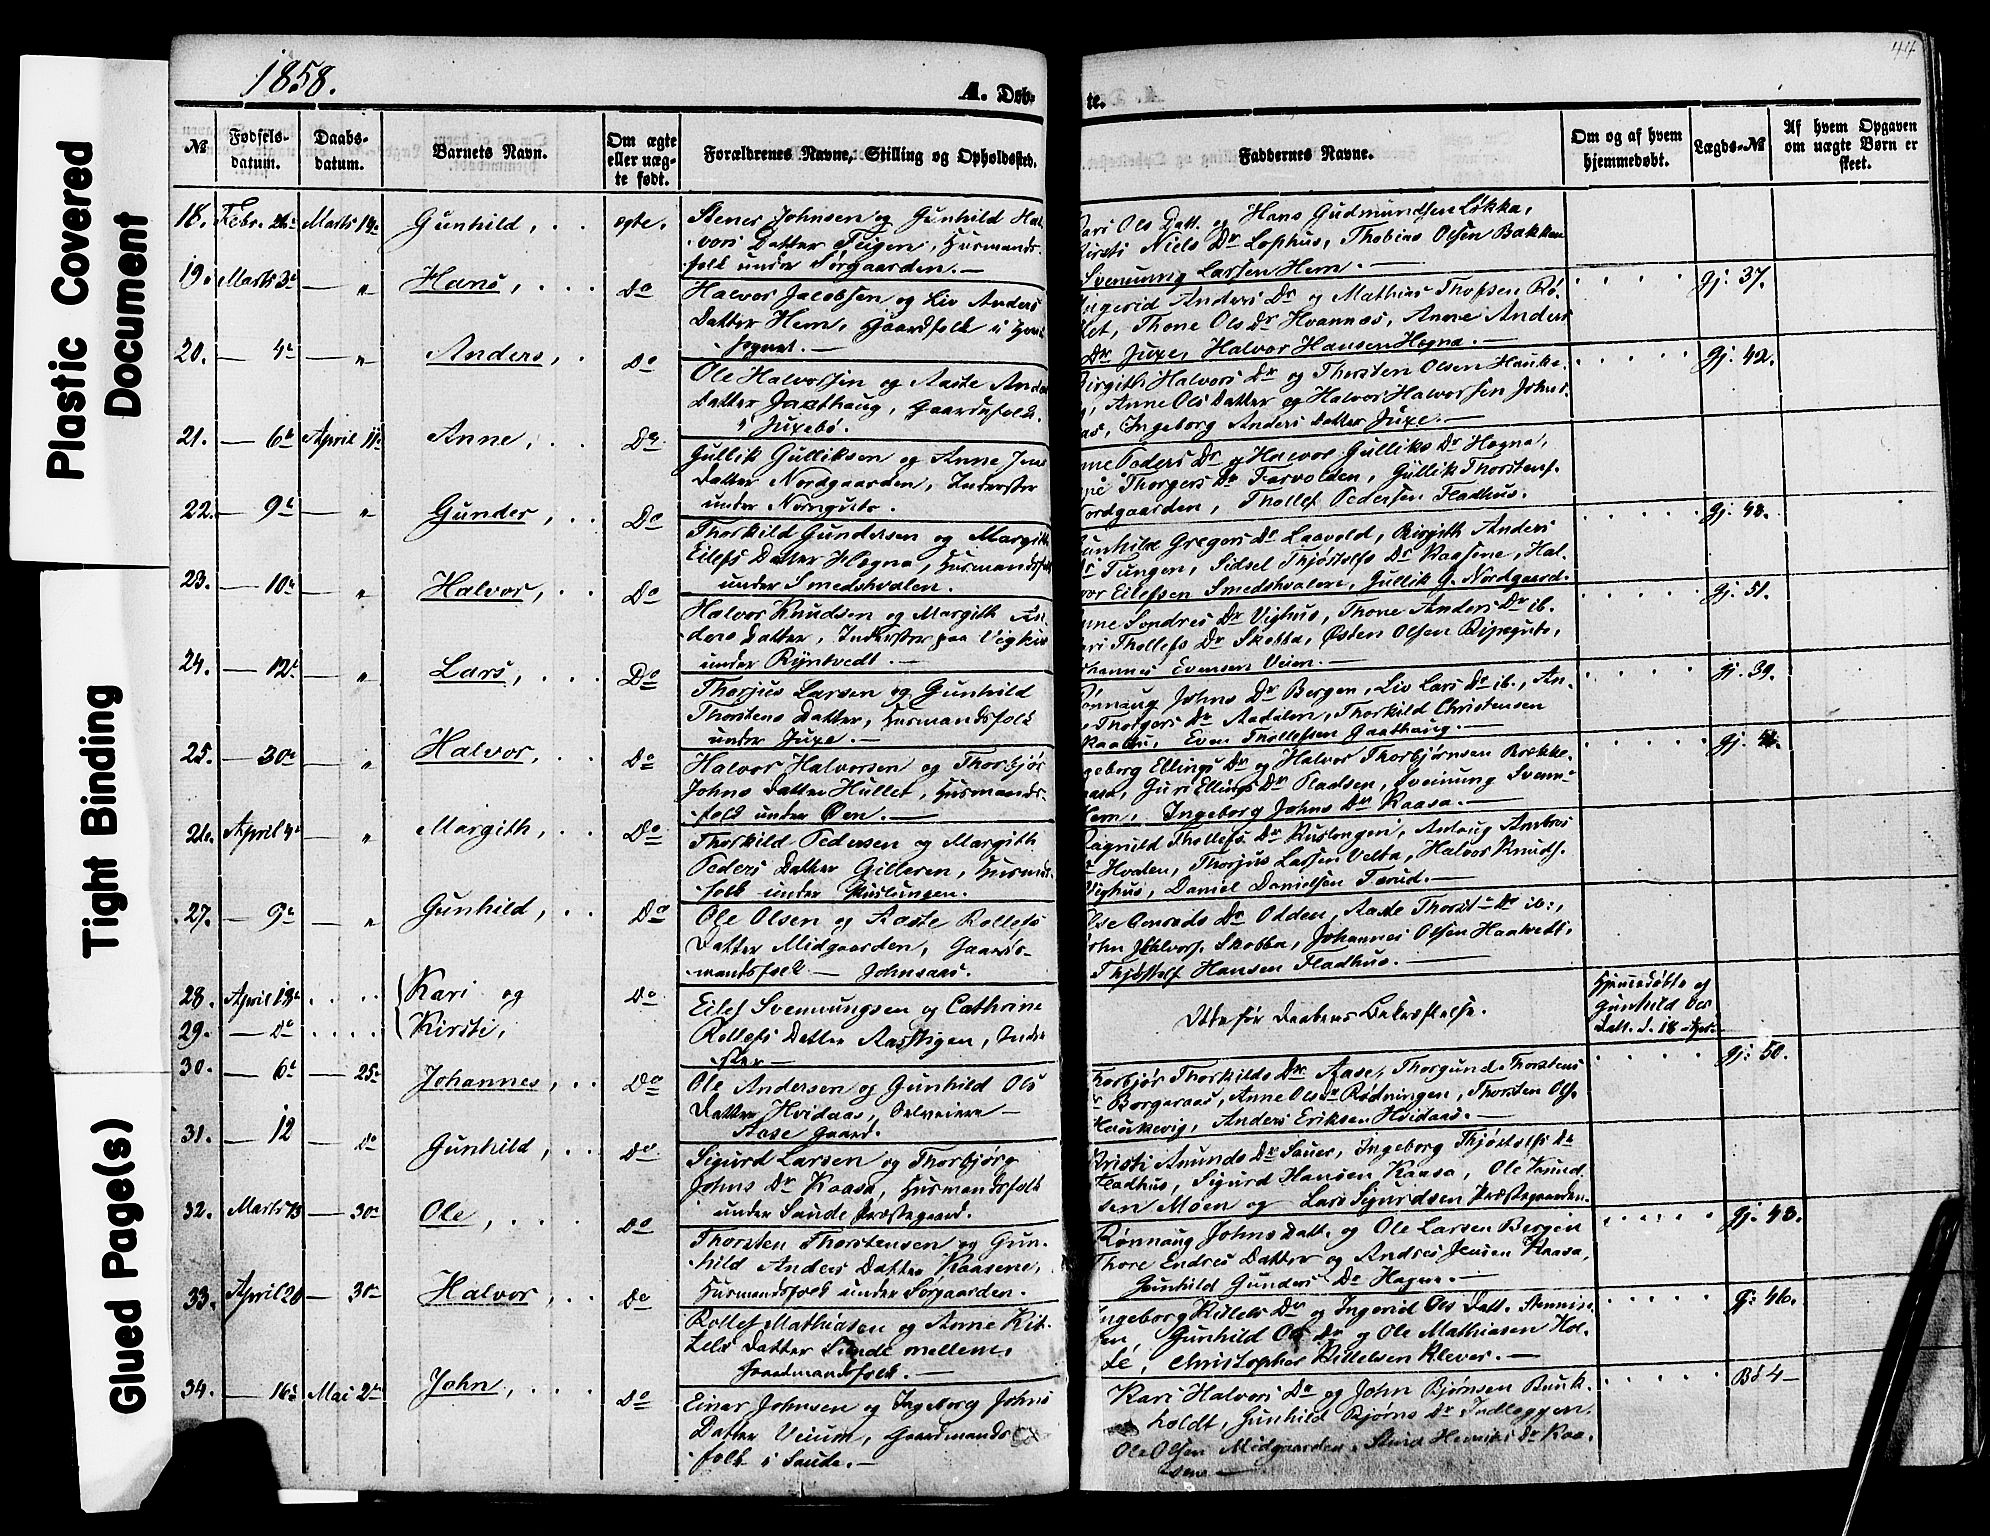 Plastic Covered
Document
Tight Binding
Glued Page(s)
1858.
A. Døb-
te.
44
№
Fødsels-
datum.
Daabs-
datum.
Barnets Navn.
Om ægte
eller uæg-
te født.
Forældrenes Navne, Stilling og Opholdssted.
Faddernes Navne.
Om og af hvem
hjemmedøbt.
Lægds-№
Af hvem Opgaven
om uægte Børn er
skeet.
18. Febr. Marts 19 Gunhild, ægte.
Johnsen og Gunhild Hal-
vors Datter Teigen, Huusmands
folk under Sørgaarden.—
Kari Ols Datt. og Hans Gudmundsen Løkka,
Kirsti Niels Dr Lophus, Thobias Olsen Bakken
Svennung Larsen Hem.—
19. Marts 3 — " Hans, Do
Halvor Jacobsen og Liv Anders
Datter Hem, Gaardfolk i
Ingerid Anders Dr og Mathias
Thone Ols Dr Hvannes, Anne Anders
Dr Juxe, Halvor Hansen Høgna.—
Gj. 37.
20. — 4 — " Anders, Do
Ole Halvorsen og Aaste Anders
Datter Gaardsfolk,
i Juxebø.
Birgith Halvors Dr og Thorsten Olsen Hauke-
Anne Ols Datter og Halvor Halvorsen Johns-
aas, Ingeborg Anders Datter Juxe.—
Gj. 42.
21. — 6 April 11 Anne, Do
Gullik Gulliksen og Anne Jens
Datter Nordgaarden, Inderster
under
Peders Dr og Halvor Gulliks Dr Høgna,
Thorgers Dr Farvolden, Gullik Thorstens.
Nordgaarden, Thollef Pedersen Fladhus.
22. — 9 — " Gunder, Do
Thorkild Gundersen og Margith
Eilefs Datter Høgna, Huusmandsfolk
under Smedshvalen.
Gunhild Gregers Dr Laavold, Birgith Anders
Dr Tungen, Sidsel Thjøstolfs Dr Kaasene, Hal-
vor Eilefsen Smedshvalen, Gullik G. Nordgaard.
Gj. 48.
23. — 10 — " Halvor, Do
Halvor Knudsen og Margith An-
ders Datter, Inderster paa
under Ryntvedt.—
Anne Sondres Dr Vighus, Thone Anders Dr ib.
Thollefs Dr Skobba, Østen Olsen
Johannes Evensen Veien.—
Gj. 51.
24. — 12 — " Lars, Do
Thorjus Larsen og Gunhild
Thorstens Datter, Huusmandsfolk
under Juxe.—
Rønnaug Johns Dr Bergen, Liv Lars Dr ib., An-
Thorgers Dr Aadalen, Thorkild Christensen
Even Thollefsen Gaathaug.—
Gj. 39.
25. — 30 — " Halvor, Do
Halvor Halvorsen og Thorbjør
Johns Datter Hullet, Huusmands-
folk under Øen.—
Ingeborg Ellings Dr og Halvor Thorbjørnsen Brække-
Guri Ellings Dr Pladsen, Sveinung Svenn-
Hem, Ingeborg Johns Dr Kaasa.—
26. April 4 — " Margith, Do
Thorkild Pedersen og Margith
Peders Datter Gilleren, Huusmds-
folk under Kuslungen.
Ragnild Thollefs Dr Kuslongen, Aslaug Ambros
Dr Hvalen, Thorjus Larsen Velta, Halvor Knuds.
Vighus, Daniel Danielsen Tørud.—
27. — 9 — " Gunhild, Do
Ole Olsen og Aaste Rollefs
Datter Midgaarden, Gaard-
mandsfolk — Johnsaas.
Else Conrads Dr Odden, Aaste Thorst. Dr ib.,
John Halvors. Skobba, Johannes Olsen Haatvedt,
Thjøstolf Hansen Fladhus.—
28. April 18 Kari og Do
29. — Do Kirsti,
Eilef Svennungsen og Cathrine
Rollefs Datter Aasstigen, Inder-
ster—
Døde før Daabens Bekræftelse.
Hjemmedøbte af
Gunhild Ols
Datt. d. 18 Apr.
30. — 6 — 25 Johannes, Do
Ole Andersen og Gunhild Ols
Datter Hvidaas, Selveiere —
Aase Gaard.
Thorbjør Thorkilds Dr Aase, Thorgund Thorstens
Dr Borgeraas, Anne Ols Dr Rødningen, Thorsten Ols.
Haukevig, Anders Eriksen Hvidaas.—
Gj. 50.
31. — 12 — Do Gunhild, Do
Sigurd Larsen og Thorbjørg
Johns Dr Kaasa, Huusmandsfolk
under Saude Præstegaard.
Kirsti Amunds Dr Sauer, Ingeborg Thjøstolfs Dr
Fladhus, Sigurd Hansen Kaasa, Ole Knud-
sen Moen og Lars Sigurdsen Præstegaarden.
32. Marts 13 — 30 Ole, Do
Thorsten Thorstensen og Gun-
hild Anders Datter Kaasene,
Huusmandsfolk under Sørgaarden.
Rønnaug Johns Datt. og Ole Larsen Bergen
Thore Endres Datter og Andres Jensen Kaasa,
Gunhild Gunders Dr Høgna.—
Gj. 43.
33. April 20 — 30 Halvor, Do
Rollef Mathiasen og Anne Kit-
tels Datter Sunde mellem,
Gaardmandsfolk.—
Ingeborg Kittels Dr og Ingerid Ols Datt.
Gunhild Ols Dr og Ole Mathiasen Hol-
te, Christopher Kittelsen Klever.—
Gj. 46.
34. — 16 Mai 2 John, Do
Einar Johnsen og Ingeborg Johns
Datter Veium, Gaardmands
folk i Saude.—
Kari Halvors Dr og John Bjørnsen Buuk-
holdt, Gunhild Bjørns Dr Indleggjen.
Ole Olsen Midgaarden, Dr Kaa-
sene—
Bö 4—